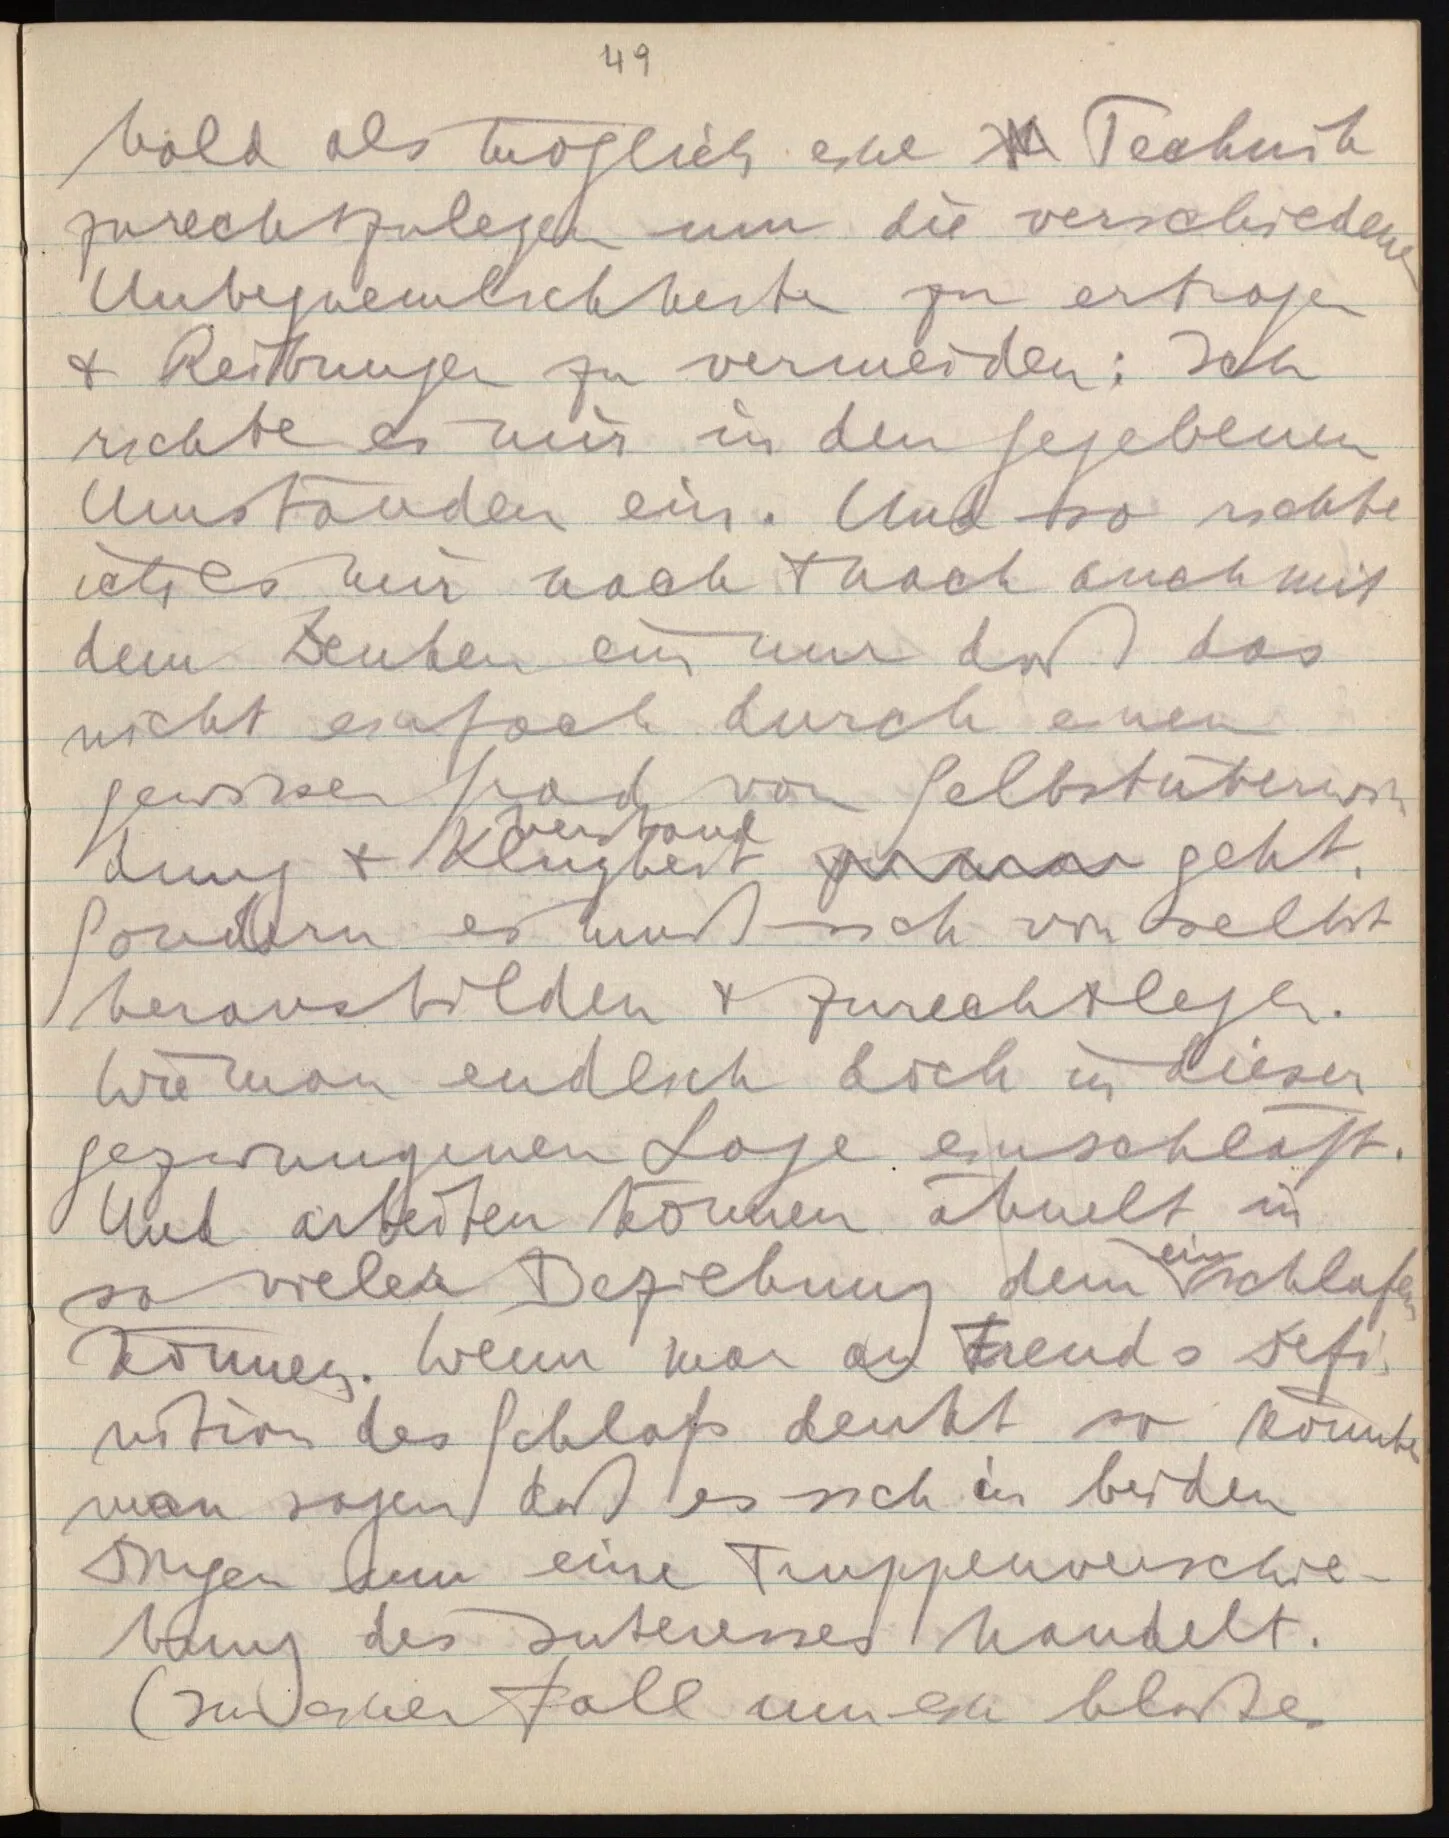 49
bald als möglich eine Technik
zurechtzulegen um die verschiedenen
Unbequemlichkeiten zu ertragen
& Reibungen zu vermeiden: Ich
richte es mir in den gegebenen
Umständen ein. Und so richte
ich es mir nach & nach auch mit
dem Denken ein nur daß das
nicht einfach durch einen
gewissen Grad von Selbstüberwin
verstand
dung & Klugheit geht.
Sondern es muß sich von selbst
herausbilden & zurechtlegen.
Wie man endlich doch in dieser
gezwungenen Lage einschläft.
Und arbeiten können ähnelt in
so vieler Beziehung dem einschlafen
können. Wenn man an Freuds Defi
nition des Schlafs denkt so könnte
man sagen daß es sich in beiden
Dingen um eine Truppenverschie-
bung des Interesses handelt.
(Im einen Fall um ein bloßes